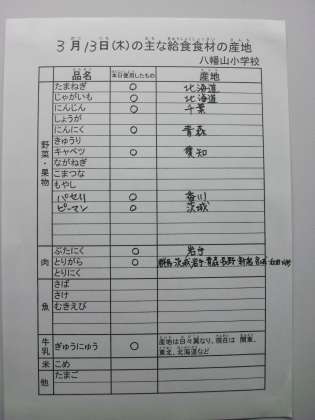 3月13日(木)の主な給食食材の産地
八幡山小学校
品名 本日使用したもの 産地
野菜・果物
たまねぎ ○ 北海道
じゃがいも ○ 北海道
にんじん ○ 千葉
しょうが
にんにく ○ 青森
きゅうり
キャベツ ○ 愛知
ながねぎ
こまつな
もやし
パセリ ○ 香川
ピーマン ○ 茨城
肉
ぶたにく ○ 岩手
とりがら ○ 群馬 茨城 岩手 青森 長野 新潟
とりにく
魚
さば
さけ
むきえび
牛乳
ぎゅうにゅう ○ 産地は日々異なり、現在は 関東、
東北、北海道など
米 こめ
他 たまご